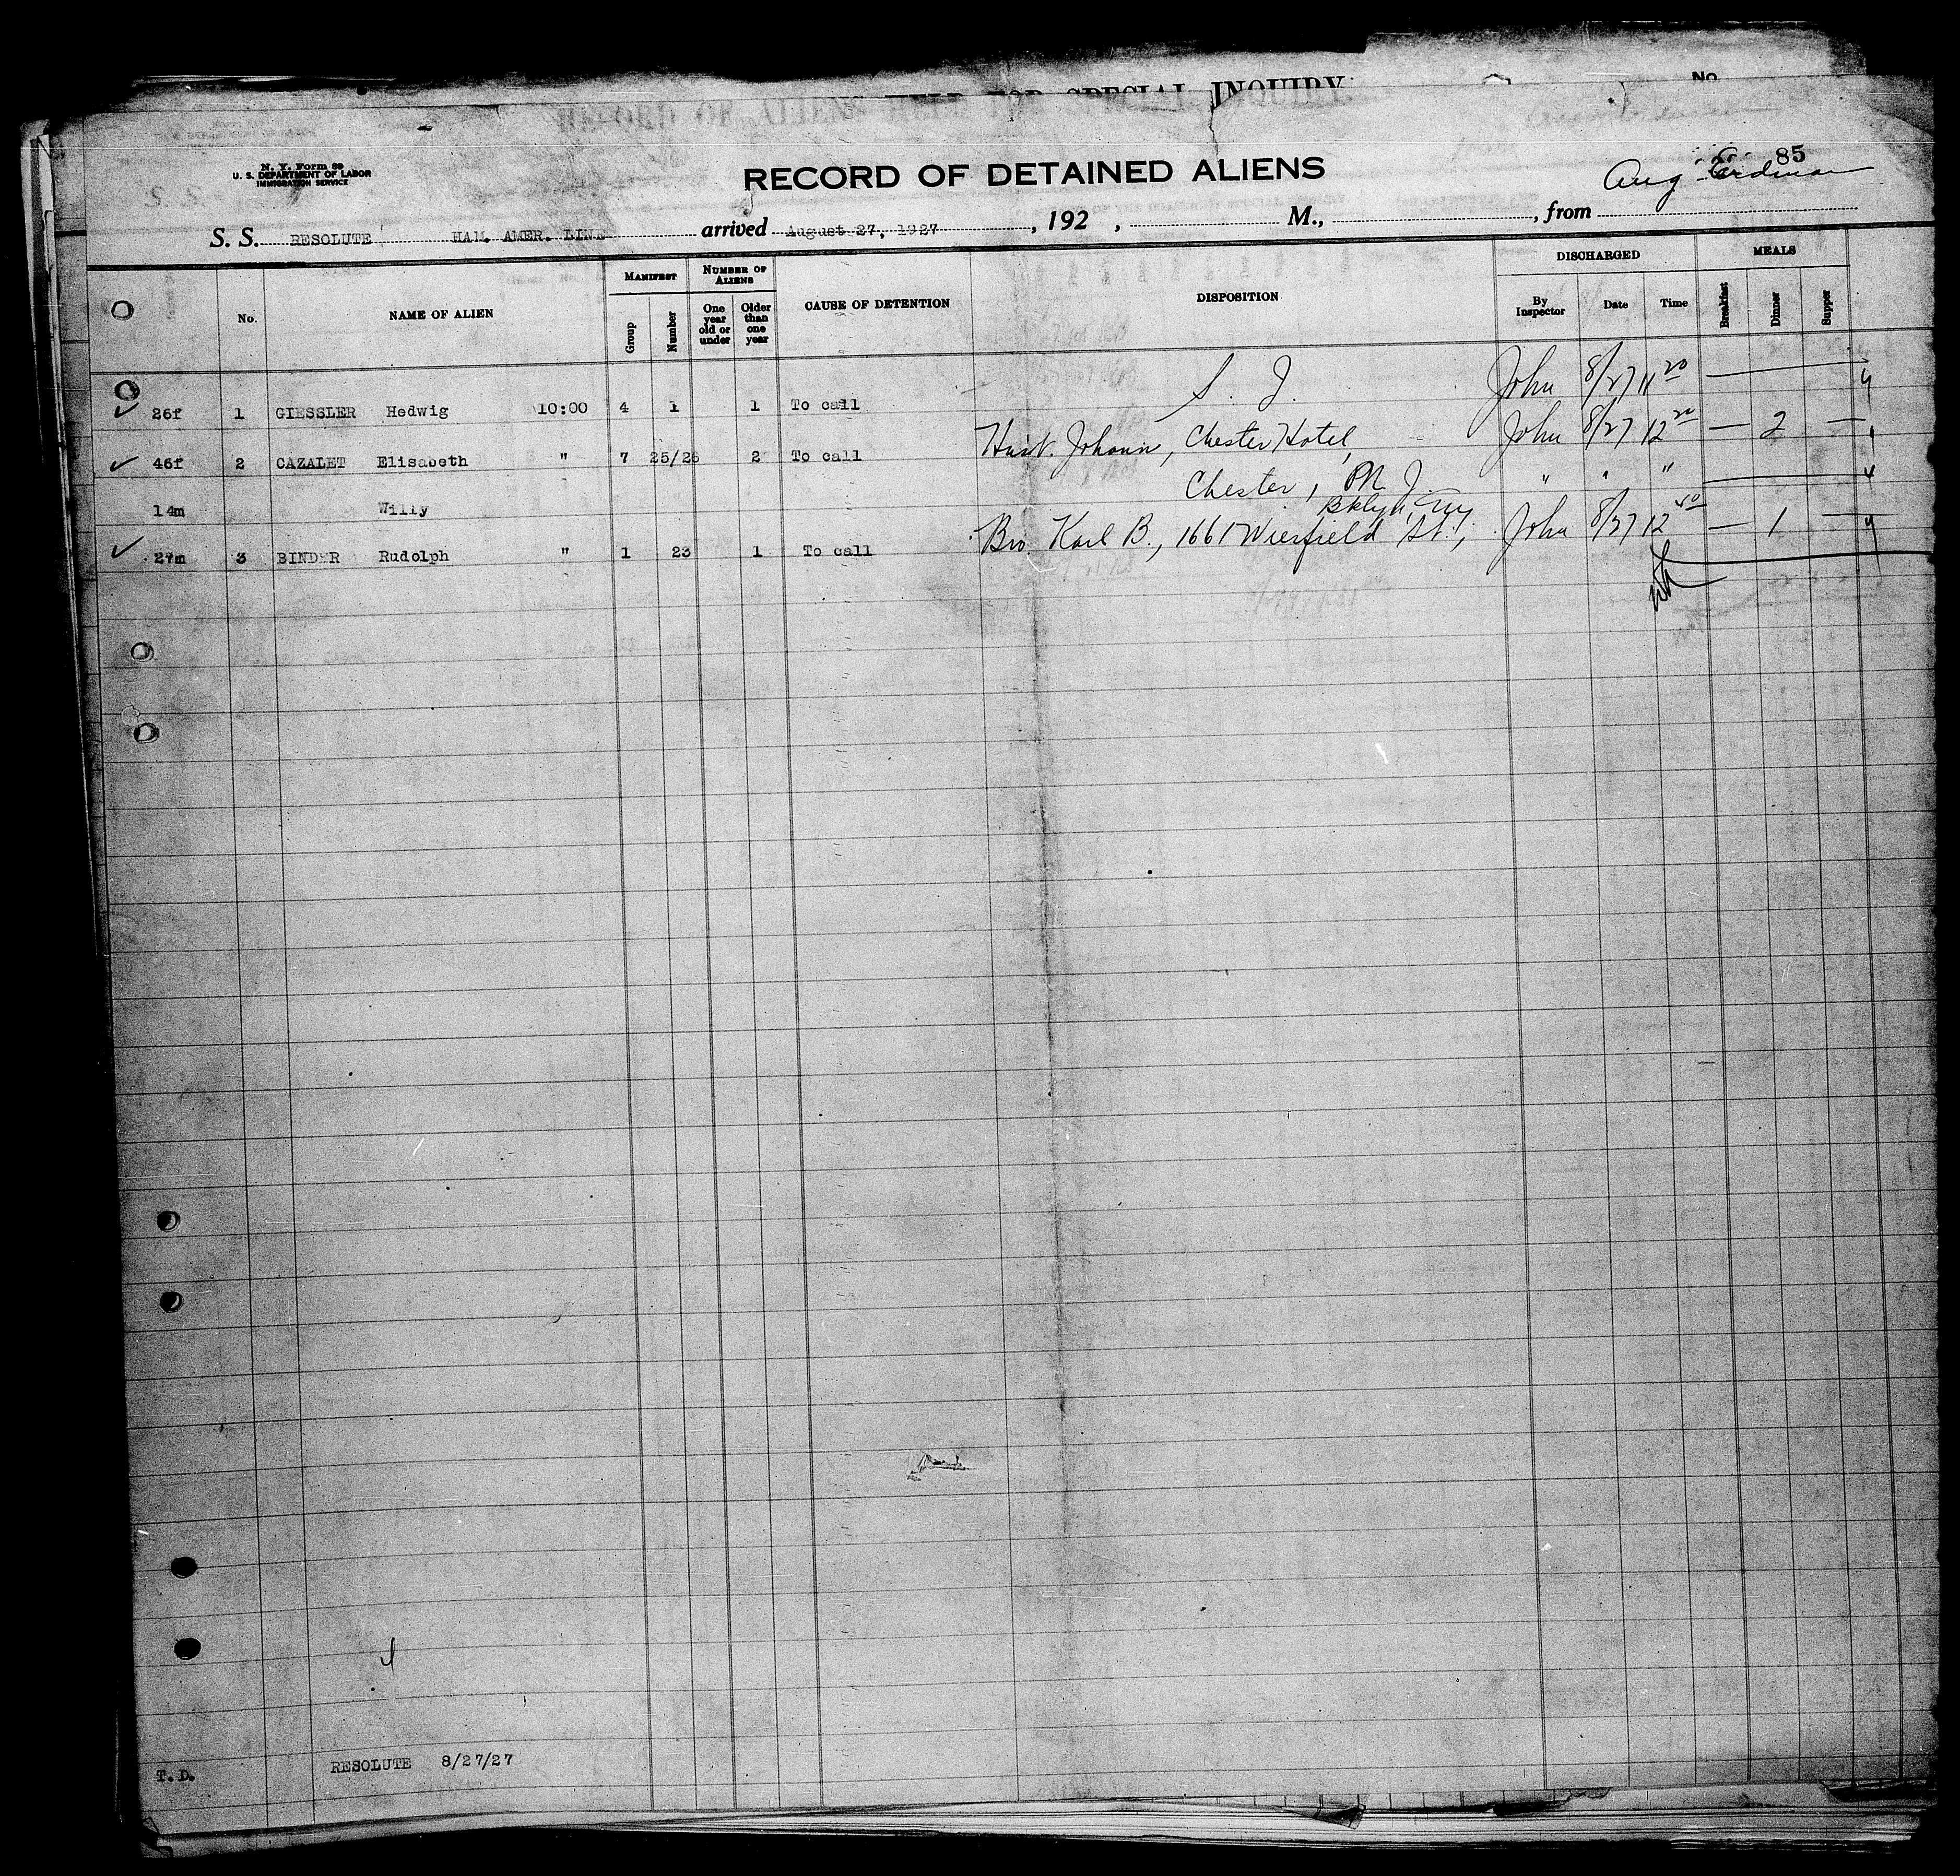 RECORD OF ALIENS HELD FOR SPECIAL INQUIRY. No.
N. Y. Form 89
U. S. DEPARTMENT OF LABOR
IMMIGRATION SERVICE
RECORD OF DETAINED ALIENS
85
Aug Erdman
S. S. RESOLUTE HAM. AMER. LINE arrived August 27, 1927, 192 , M., , from
No. NAME OF ALIEN MANIFEST Group Number NUMBER OF ALIENS One year old or under Older than one year CAUSE OF DETENTION DISPOSITION DISCHARGED By Inspector Date Time MEALS Breakfast Dinner Supper
26f 1 GIESSLER Hedwig 10:00 4 1 1 To call S. I. John 8/27 11 20 —
46f 2 CAZALET Elisabeth " 7 25/26 2 To call Husb. Johann, Chester Hotel, John 8/27 12 20 — 2 —
14m Willy Chester, N. J. " " "
Bklyn, NY
27m 3 BINDER Rudolph " 1 23 1 To call Bro Karl B., 1661 Wierfield St., John 8/27 12 50 — 1 —
T. D. RESOLUTE 8/27/27